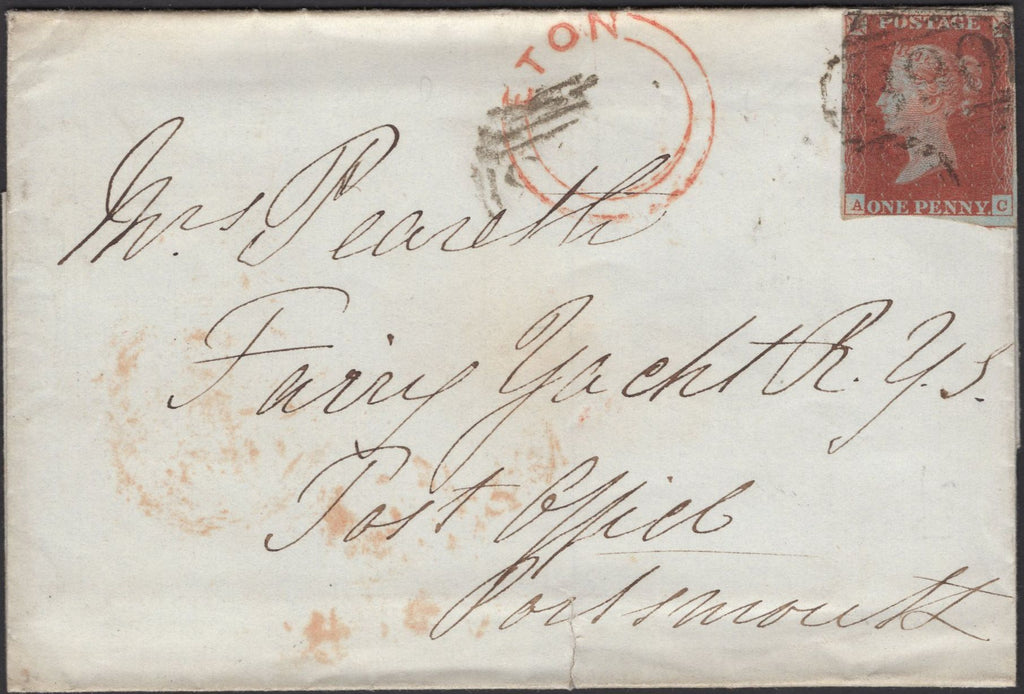 ETON
POSTAGE
A ONE PENNY C
Mrs Peareth
Fairy Yacht R.Y.S.
Post Office
Portsmouth